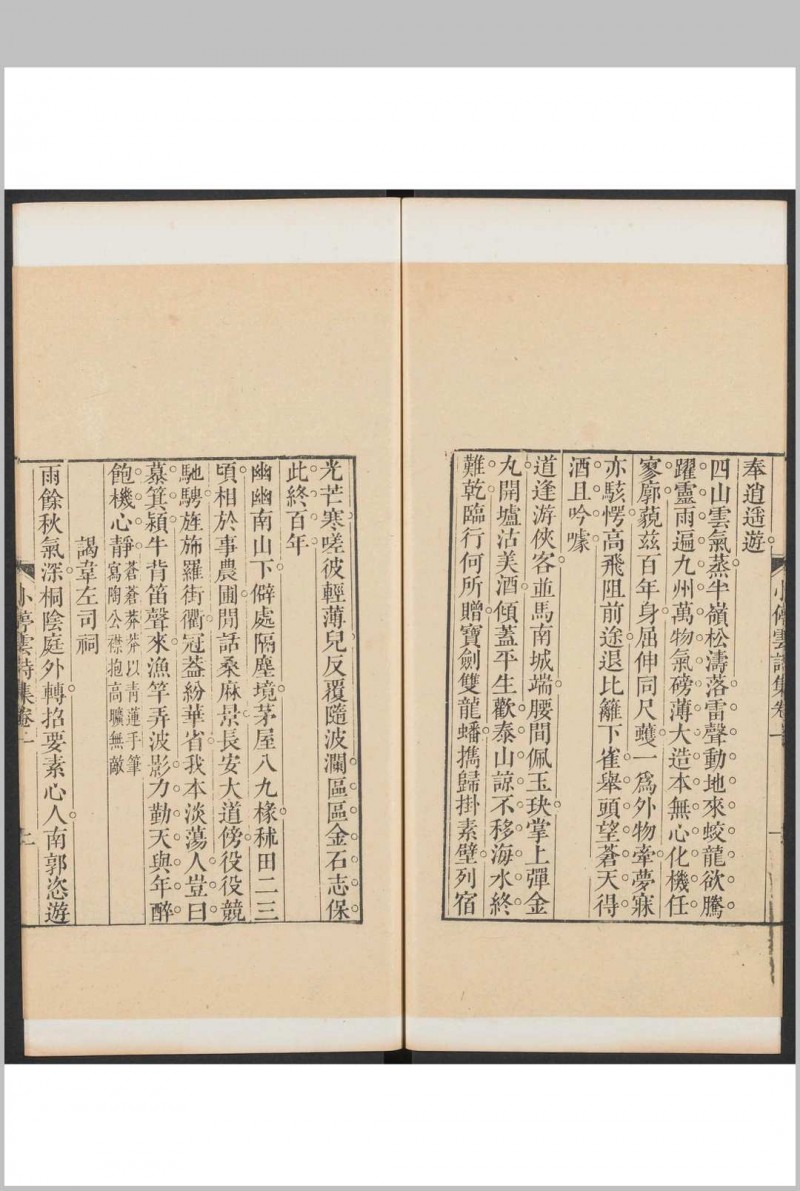 奉逍遥遊
四山雲氣蒸半嶺松濤落雷聲動地來蛟龍欲騰
躍靈雨遍九州萬物氣磅薄大造本無心化機任
寥廓藐茲百年身屈伸同尺蠖一爲外物牽夢寐
亦駭愕高飛阻前途退比籬下雀舉頭望蒼天得
酒且吟噱
道逢游俠客並馬南城端腰間佩玉玦掌上彈金
丸開壚沽美酒傾蓋平生歡泰山諒不移海水終
難乾臨行何所贈寶劍雙龍蟠攜歸掛素壁列宿
小停雲詩集卷一
光芒寒嗟彼輕薄兒反覆隨波瀾區區金石志保
此終百年
幽幽南山下僻處隔塵境茅屋八九椽秫田二三
頃相於事農圃閒話桑麻景長安大道傍役役競
馳騁旌斾羅街衢冠葢紛華省我本淡蕩人豈曰
慕箕潁牛背笛聲來漁竿弄波影力勤天與年醉
飽機心靜蒼蒼莽莽以青蓮手筆
寫陶公襟抱高曠無敵
謁韋左司祠
雨餘秋氣深桐陰庭外轉招要素心人南郭恣遊
小停雲詩集卷一